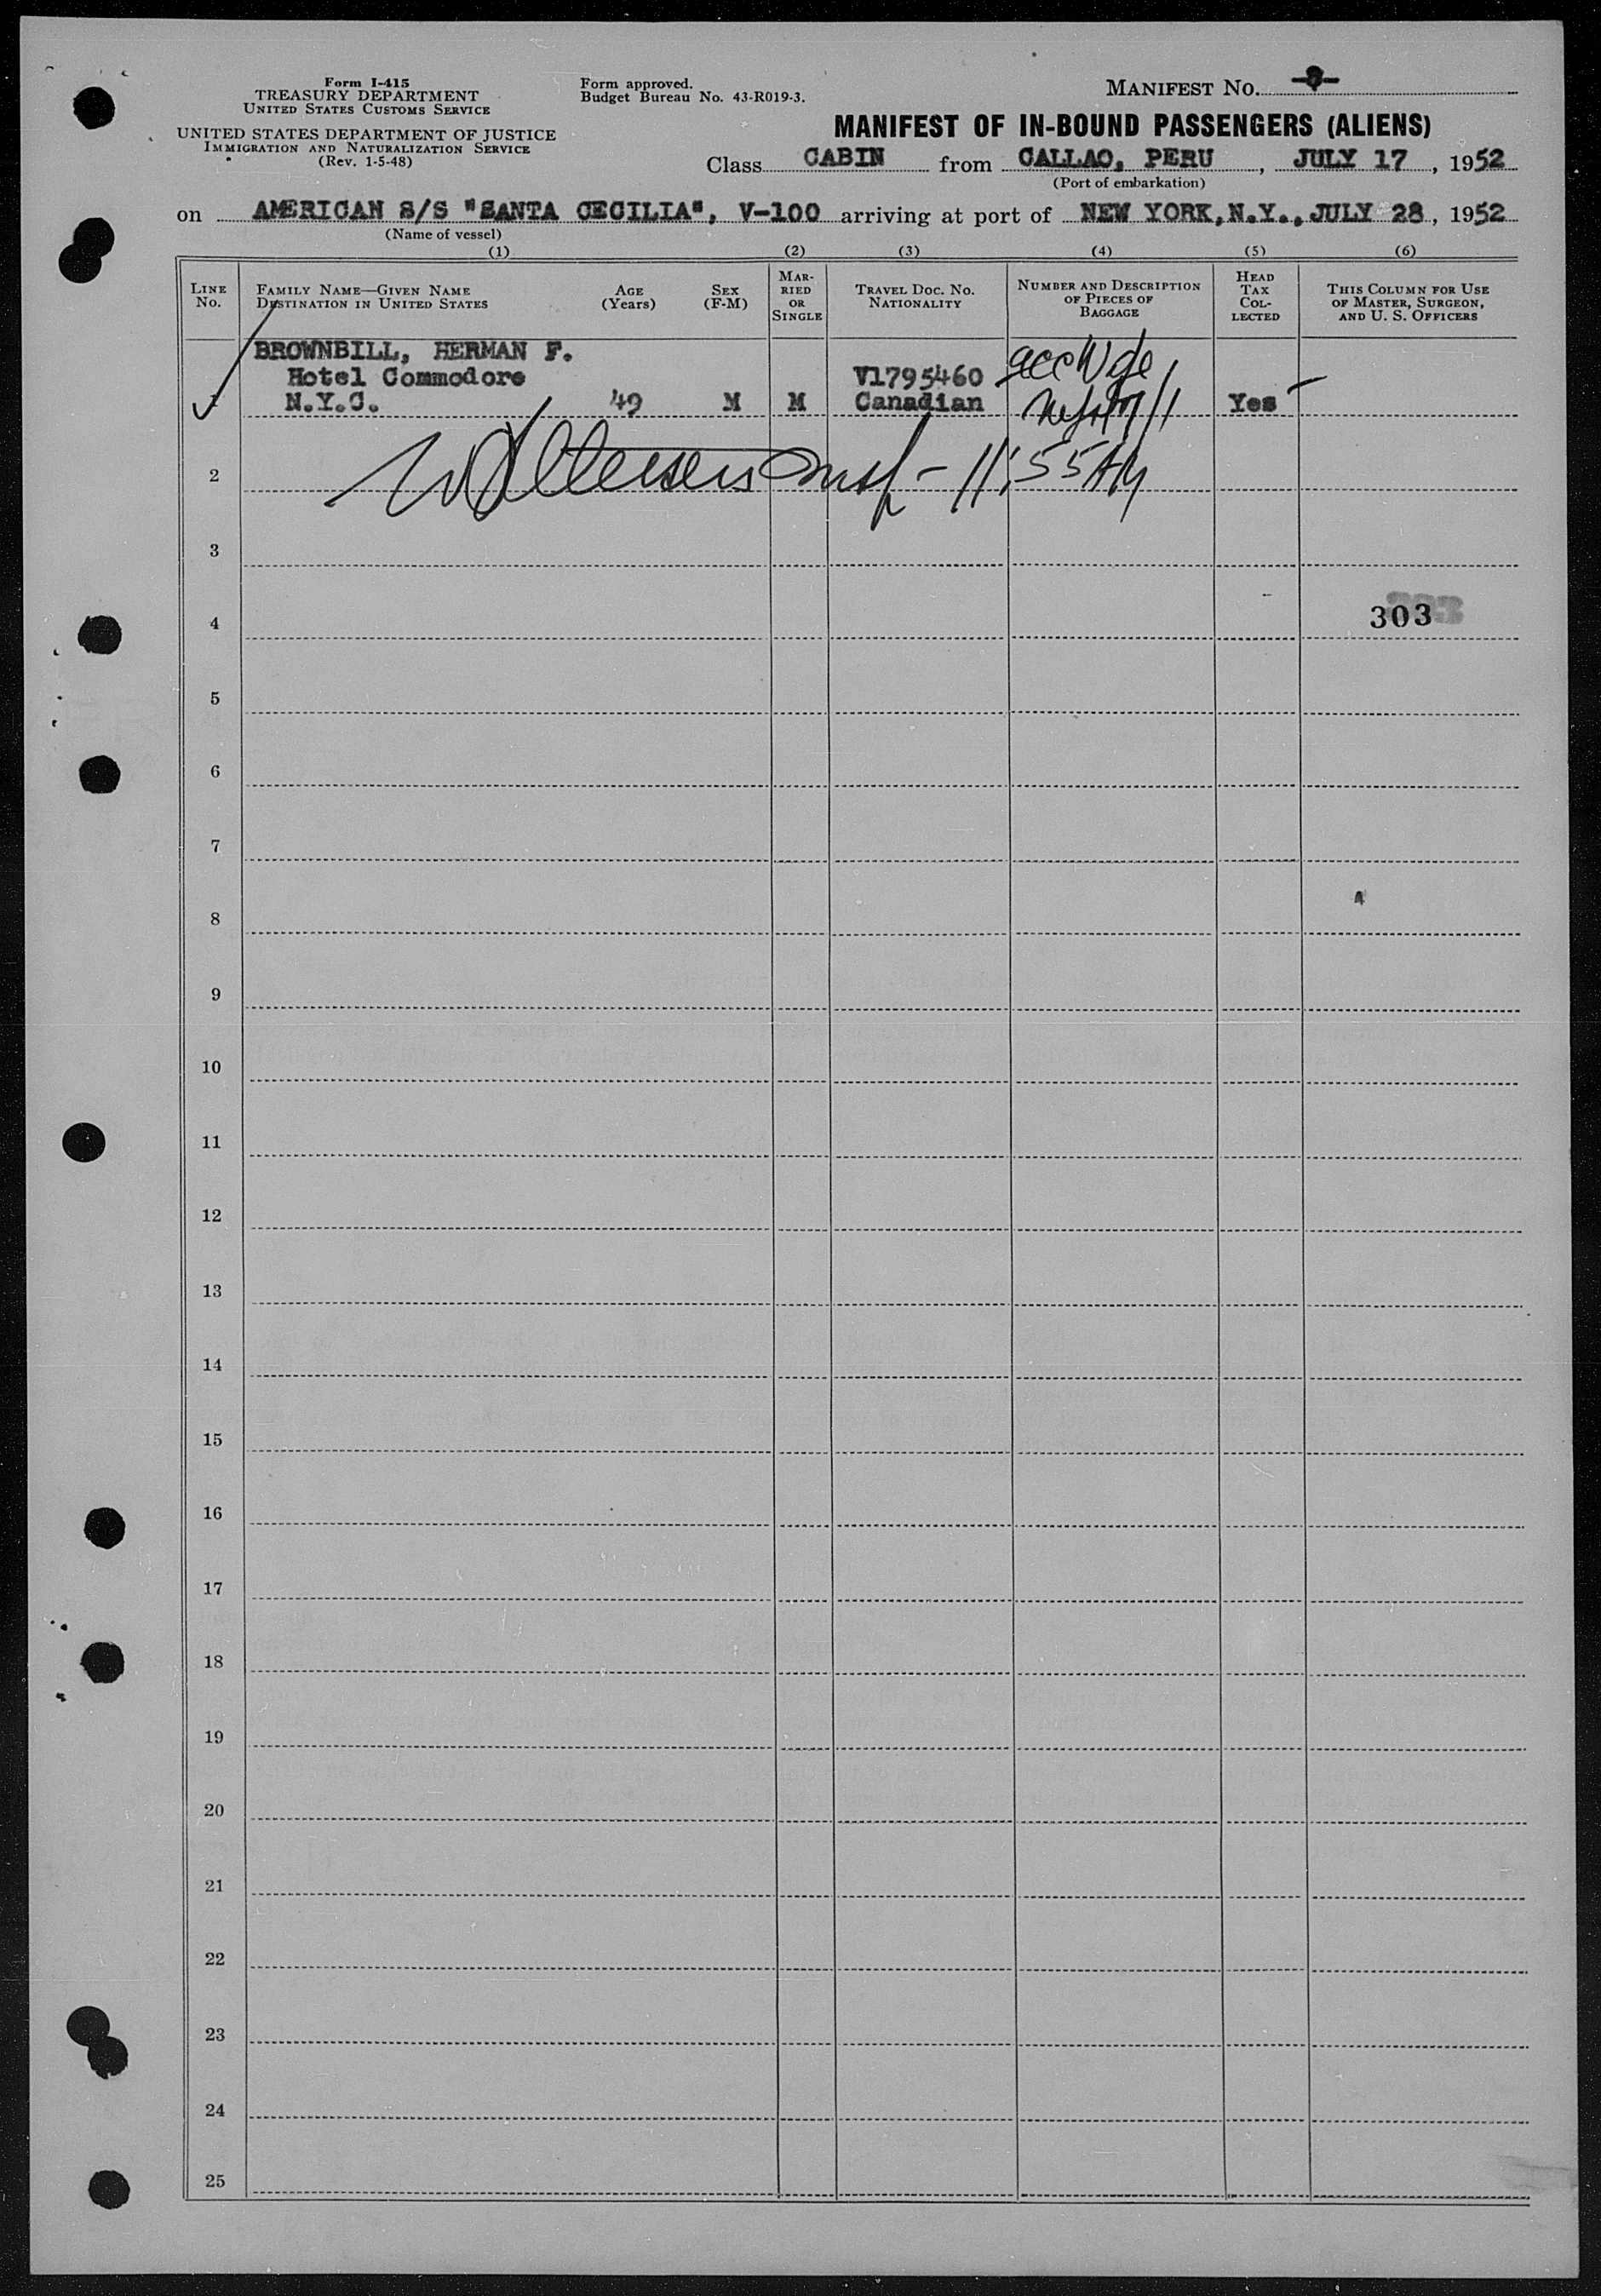 Form I-415
TREASURY DEPARTMENT
UNITED STATES CUSTOMS SERVICE
UNITED STATES DEPARTMENT OF JUSTICE
IMMIGRATION AND NATURALIZATION SERVICE
(Rev. 1-5-48)
Form approved.
Budget Bureau No. 43-R019-3.
MANIFEST NO.
MANIFEST OF IN-BOUND PASSENGERS (ALIENS)
Class CABIN from CALLAO, PERU, JULY 17, 1952
(Port of embarkation)
on AMERICAN S/S "SANTA CECILIA", V-100 arriving at port of NEW YORK, N.Y., JULY 28, 1952
(Name of vessel)
(1) (2) (3) (4) (5) (6)
LINE NO.
FAMILY NAME—GIVEN NAME
DESTINATION IN UNITED STATES
AGE
(Years)
SEX
(F-M)
MAR-
RIED
OR
SINGLE
TRAVEL DOC. NO.
NATIONALITY
NUMBER AND DESCRIPTION
OF PIECES OF
BAGGAGE
HEAD
TAX
COL-
LECTED
THIS COLUMN FOR USE
OF MASTER, SURGEON,
AND U. S. OFFICERS
BROWNBILL, HERMAN F.
Hotel Commodore V1795460
N.Y.C. 49 M M Canadian Yes
2 Insp - 11:55 AM
3
4 303
5
6
7
8
9
10
11
12
13
14
15
16
17
18
19
20
21
22
23
24
25